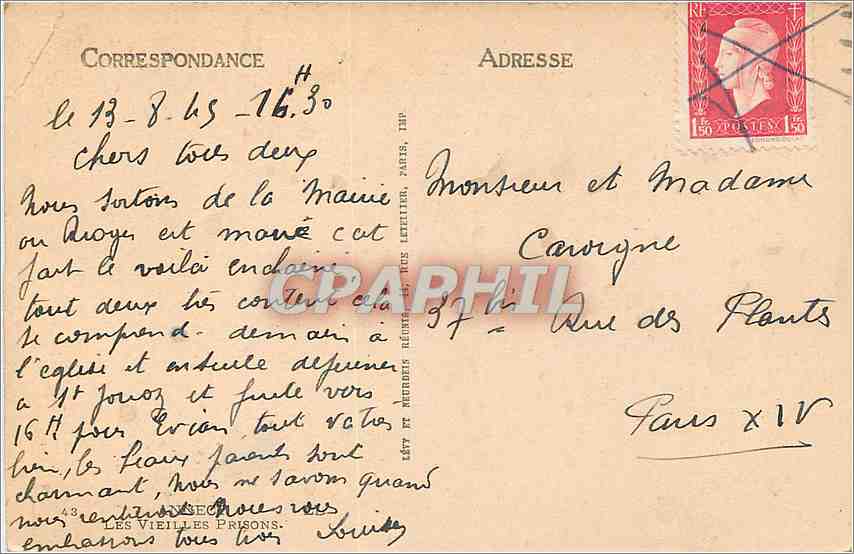 CORRESPONDANCE
le 13-8-45 - 16H30
chers tous deux
nous sortons de la Mairie
ou Roger est marié c'est
fait le voilà enchainé,
tout deux très content cela
se comprend. demain à
l'église et ensuite dejeuner
a St Jorioz et fuite vers
16H pour Evian, tout va très
bien, les beaux parents sont
charmant, nous ne savons quand
nous rentrerons nous vous
embrassons tous trois
43 ANNECY
LES VIEILLES PRISONS.
LÉVY ET NEURDEIN RÉUNIS, 44, RUE LETELLIER, PARIS, IMP
ADRESSE
RF
1F50 POSTES 1F50
Monsieur et Madame
Cavoigne
37 bis Rue des Plantes
Paris XIV
CPAPHIL